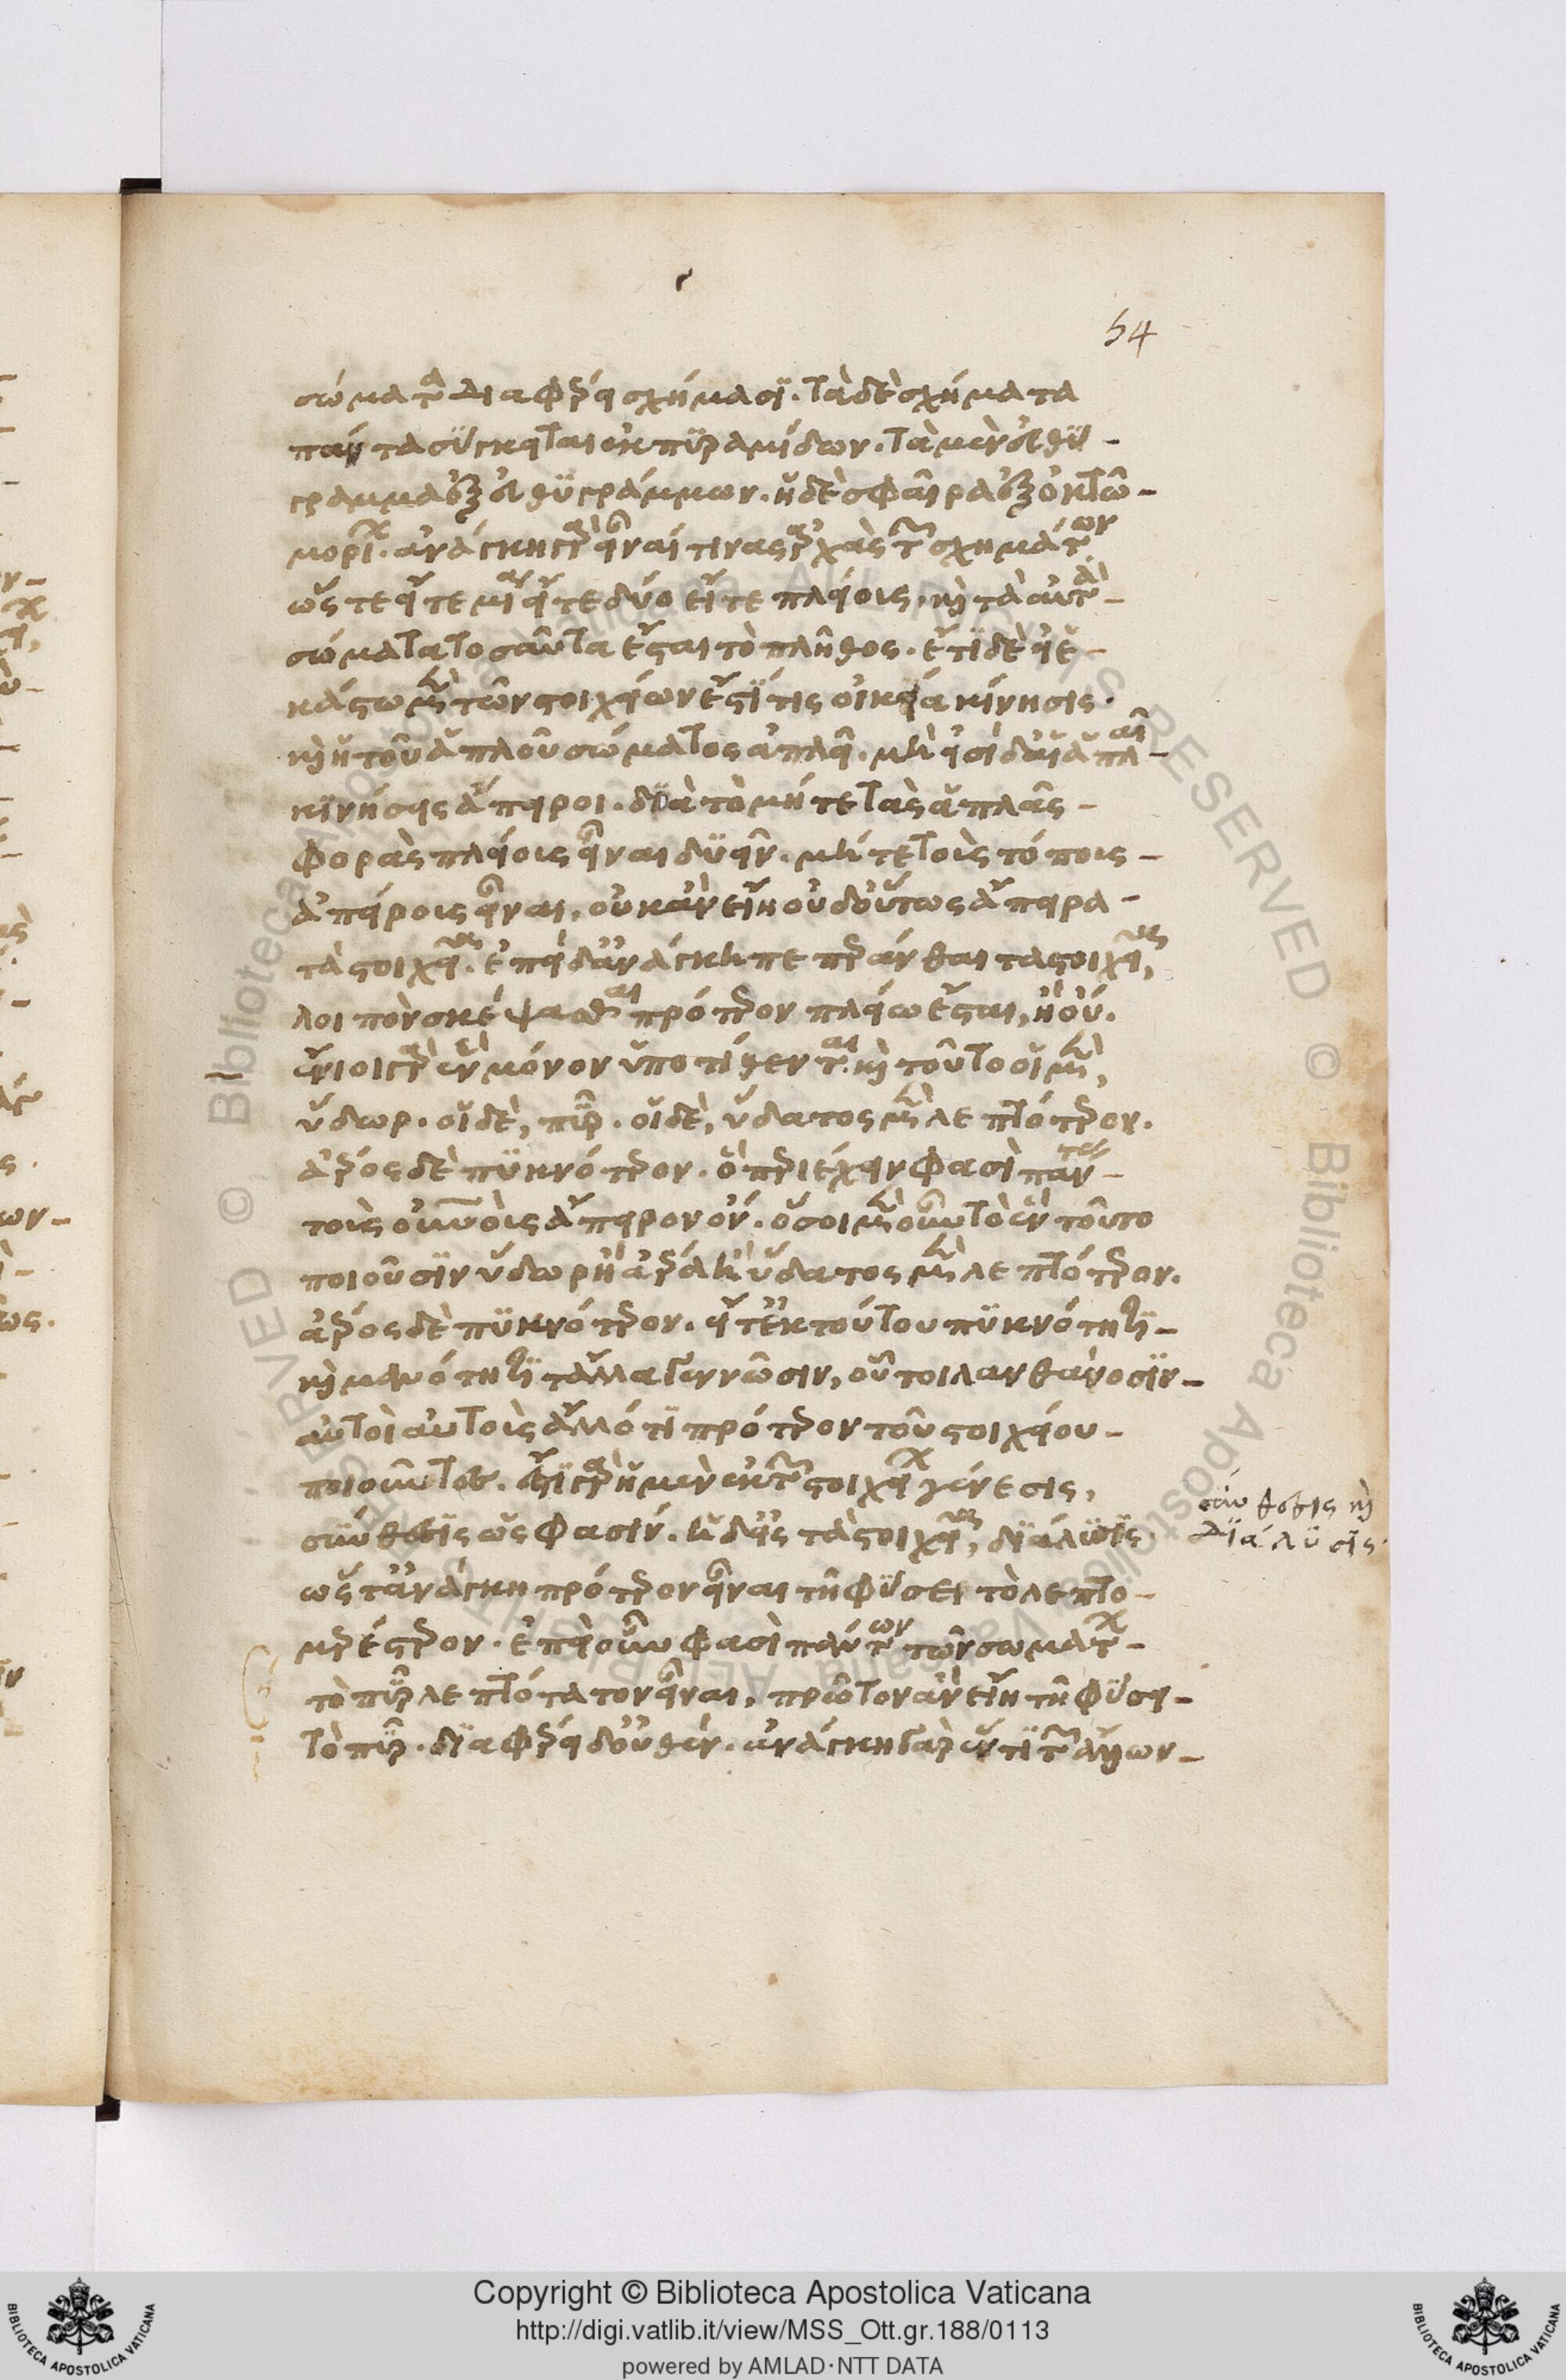 54
σώματα διαφέρει σχήμασι. τὰ δὲ σχήματα
πάντα σύγκειται ἐκ πυραμίδων. τὰ μὲν εὐθύ-
γραμμα ἐξ εὐθυγράμμων. ἡ δὲ σφαῖρα ἐξ ὀκτὼ
μορίων. ἀνάγκη γὰρ εἶναί τινας ἀρχὰς τῶν σχημάτων.
ὥστε εἴτε μία εἴτε δύο εἴτε πλείους, καὶ τὰ αὐτὰ
σώματα τοσαῦτα ἔσται τὸ πλῆθος. ἔτι δὲ εἰ ἑ-
κάστω μὲν τῶν στοιχείων ἐστί τις οἰκεία κίνησις.
καὶ ἡ τοῦ ἁπλοῦ σώματος ἁπλῆ. μὴ εἰσὶ δ' αἱ ἁπλαῖ
κινήσεις ἄπειροι. διὰ τὸ μήτε τὰς ἁπλᾶς
φορὰς πλείους εἶναι δυεῖν. μήτε τοὺς τόπους
ἀπείρους εἶναι, οὐκ ἂν εἴη οὐδ' οὕτως ἄπειρα
τὰ στοιχεῖα. ἐπεὶ δ' ἀνάγκη πεπεράνθαι τὰ στοιχεῖα,
λοιπὸν σκέψασθαι πρότερον πλείω ἔσται, ἢ οὔ.
ἔνιοι γὰρ ἓν μόνον ὑποτίθενται. καὶ τοῦτο οἱ μὲν,
ὕδωρ. οἱ δὲ, πῦρ. οἱ δὲ, ὕδατος μὲν λεπτότερον.
ἀέρος δὲ πυκνότερον. ὃ περιέχειν φασὶ πάντας
τοὺς οὐρανοὺς ἄπειρον ὄν. ὅσοι μὲν οὖν τὸ ἓν τοῦτο
ποιοῦσιν ὕδωρ ἢ ἀέρα ἢ ὕδατος μὲν λεπτότερον.
ἀέρος δὲ πυκνότερον. εἶτ' ἐκ τούτου πυκνότητι
καὶ μανότητι τἄλλα γεννῶσιν, οὗτοι λανθάνουσιν
αὐτοὶ αὑτοὺς ἄλλό τι πρότερον τοῦ στοιχείου
ποιοῦντες. ἔστι γὰρ ἡ μὲν ἐκ τῶν στοιχείων γένεσις,
σύνθεσις ὥς φασιν. ἡ δ' εἰς τὰ στοιχεῖα, διάλυσις.
ὥστ' ἀνάγκη πρότερον εἶναι τῇ φύσει τὸ λεπτο-
μερέστερον. ἐπεὶ οὖν φασὶ πάντων τῶν σωμάτων
τὸ πῦρ λεπτότατον εἶναι, πρῶτον ἂν εἴη τῇ φύσει
τὸ πῦρ. διαφέρει δ' οὐθέν. ἀνάγκη γὰρ ἕν τι τῶν ἄλλων
σύνθεσις καὶ
διάλυσις
Copyright © Biblioteca Apostolica Vaticana
http://digi.vatlib.it/view/MSS_Ott.gr.188/0113
powered by AMLAD·NTT DATA